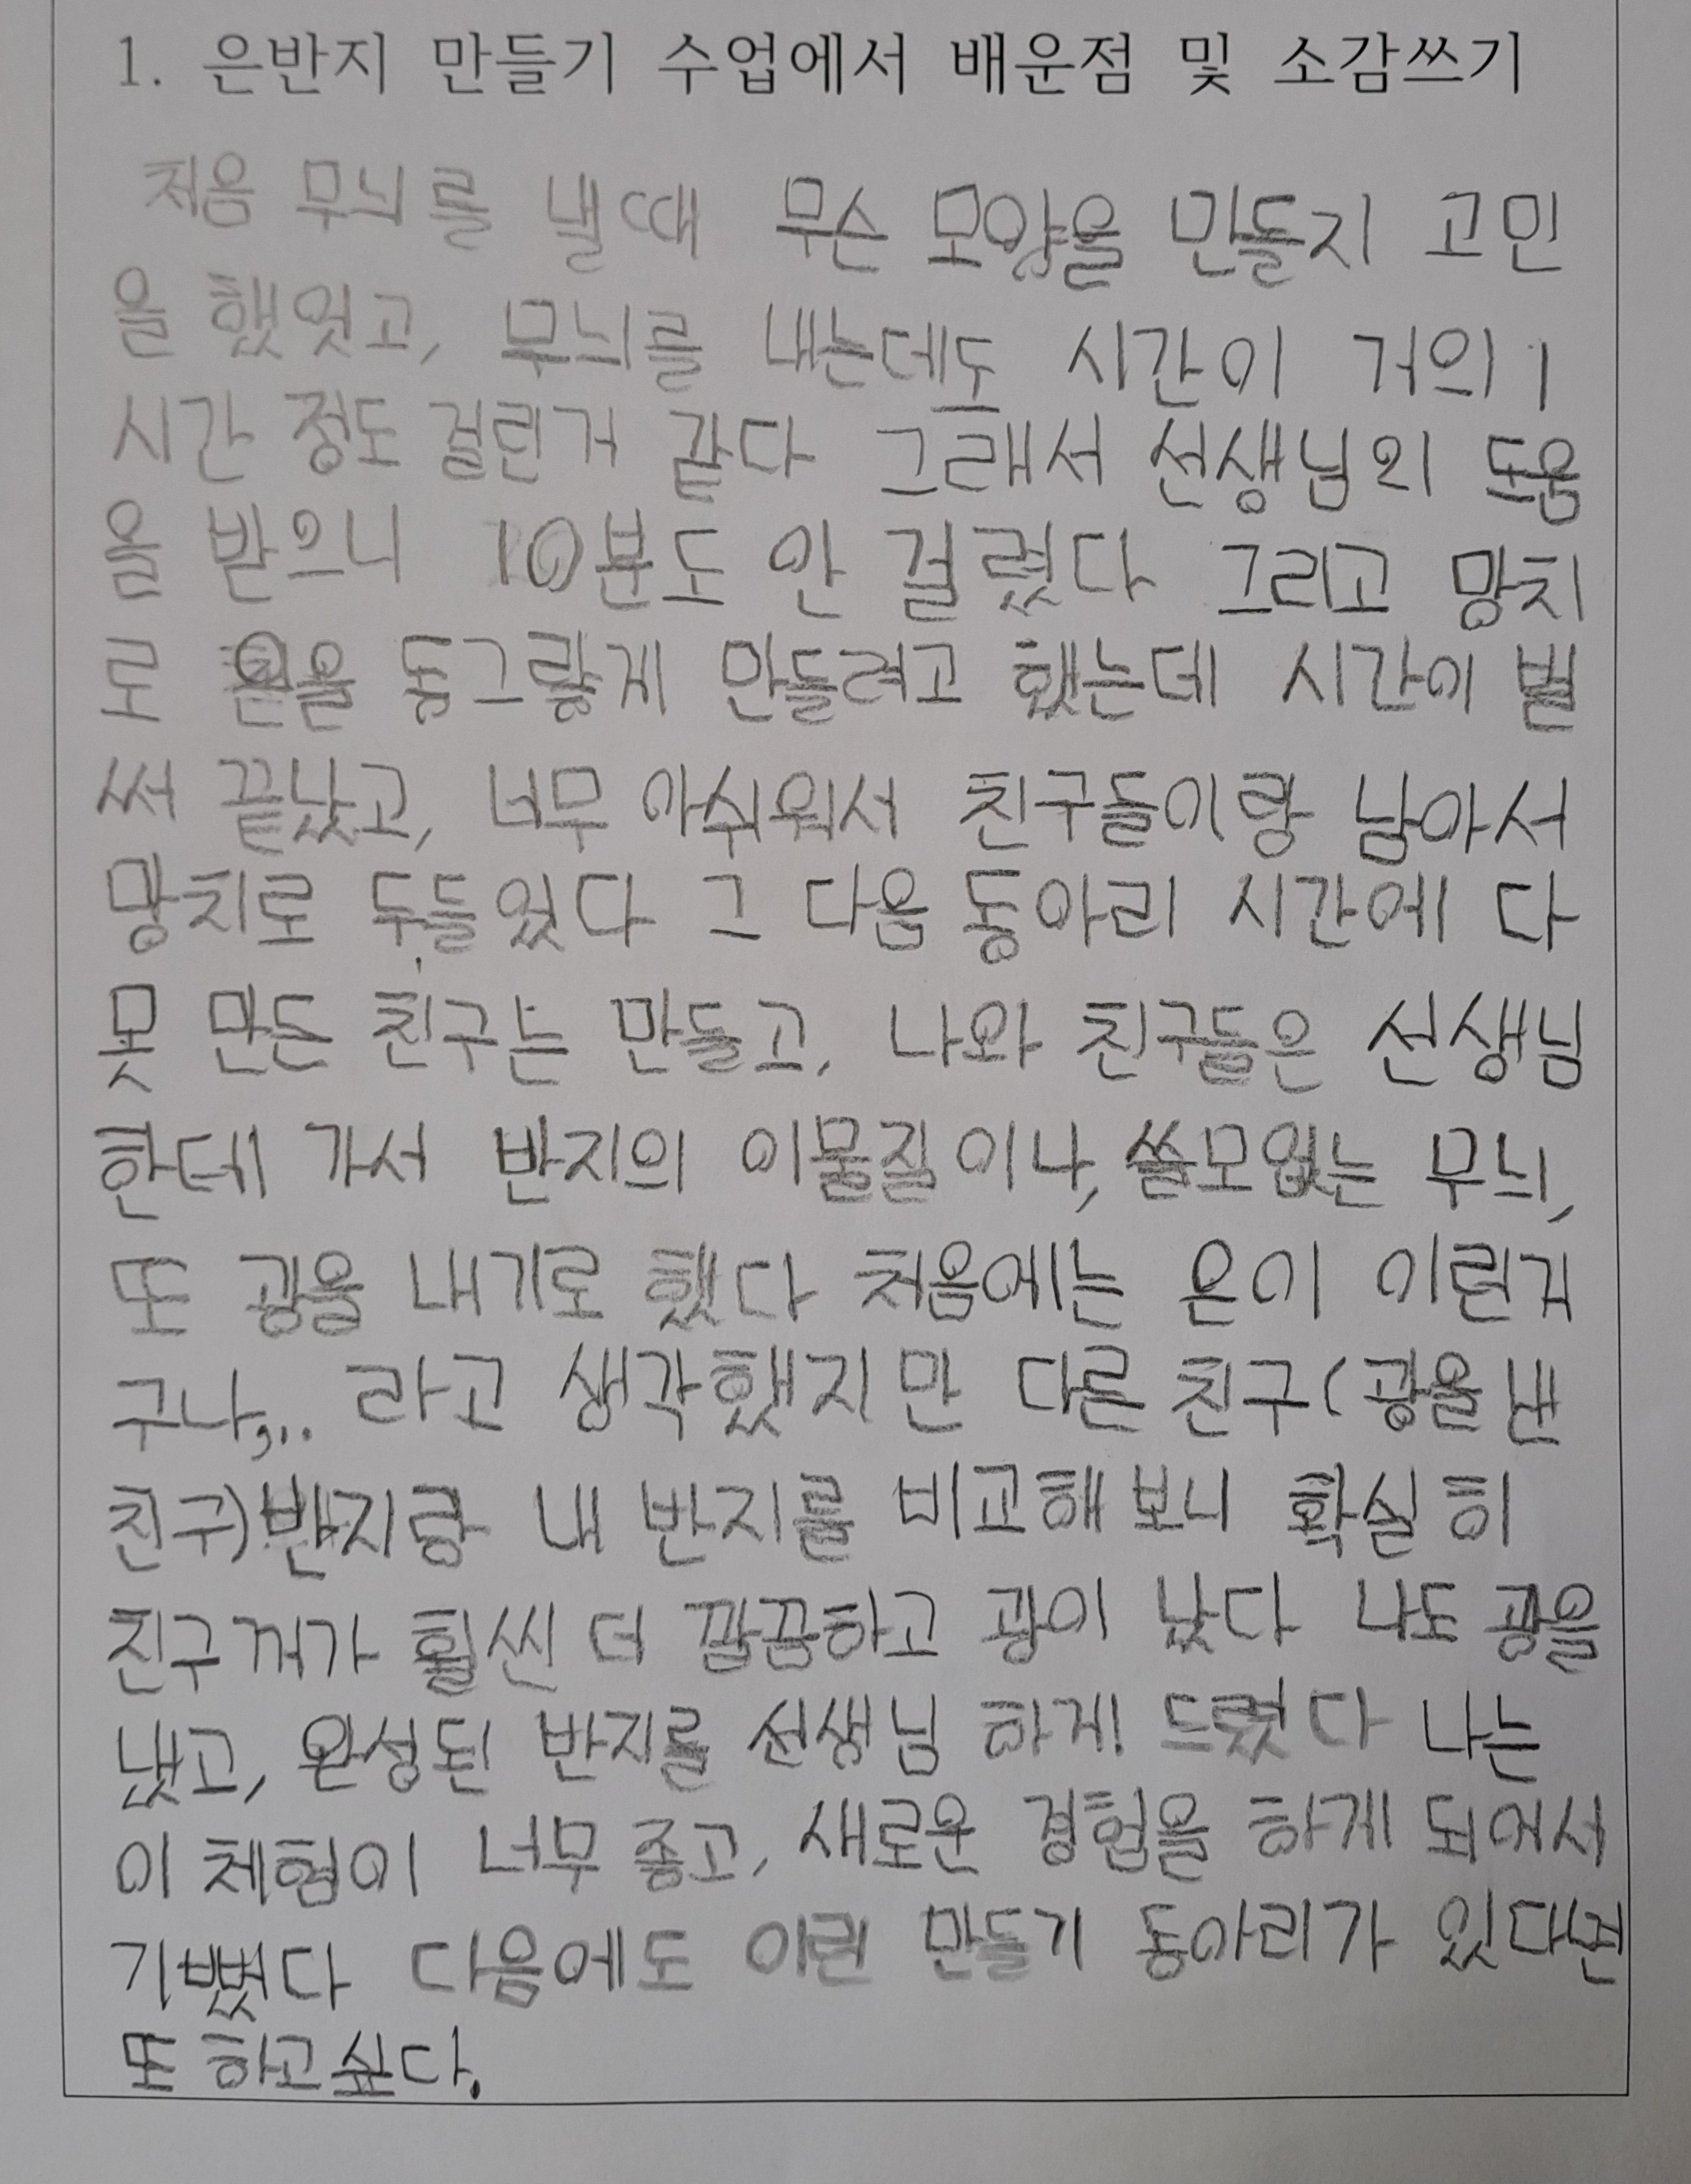 1. 은반지 만들기 수업에서 배운점 및 소감쓰기
처음 무늬를 낼때 무슨 모양을 만들지 고민
을 했엇고, 무늬를 내는데도 시간이 거의 1
시간 정도 걸린거 같다 그래서 선생님의 도움
을 받으니 10분도 안 걸렸다 그리고 망치
로 은을 동그랗게 만들려고 했는데 시간이 벌
써 끝났고, 너무 아쉬워서 친구들이랑 남아서
망치로 두들었다 그 다음 동아리 시간에 다
못 만든 친구는 만들고, 나와 친구들은 선생님
한테 가서 반지의 이물질이나, 쓸모없는 무늬,
또 광을 내기로 했다 처음에는 은이 이런거
구나,.. 라고 생각했지만 다른 친구(광을 낸
친구)반지랑 내 반지를 비교해 보니 확실히
친구꺼가 훨씬 더 깔끔하고 광이 났다 나도 광을
냈고, 완성된 반지를 선생님 하게 드렸다 나는
이 체험이 너무 좋고, 새로운 경험을 하게 되어서
기뻤다 다음에도 이런 만들기 동아리가 있다면
또 하고싶다.